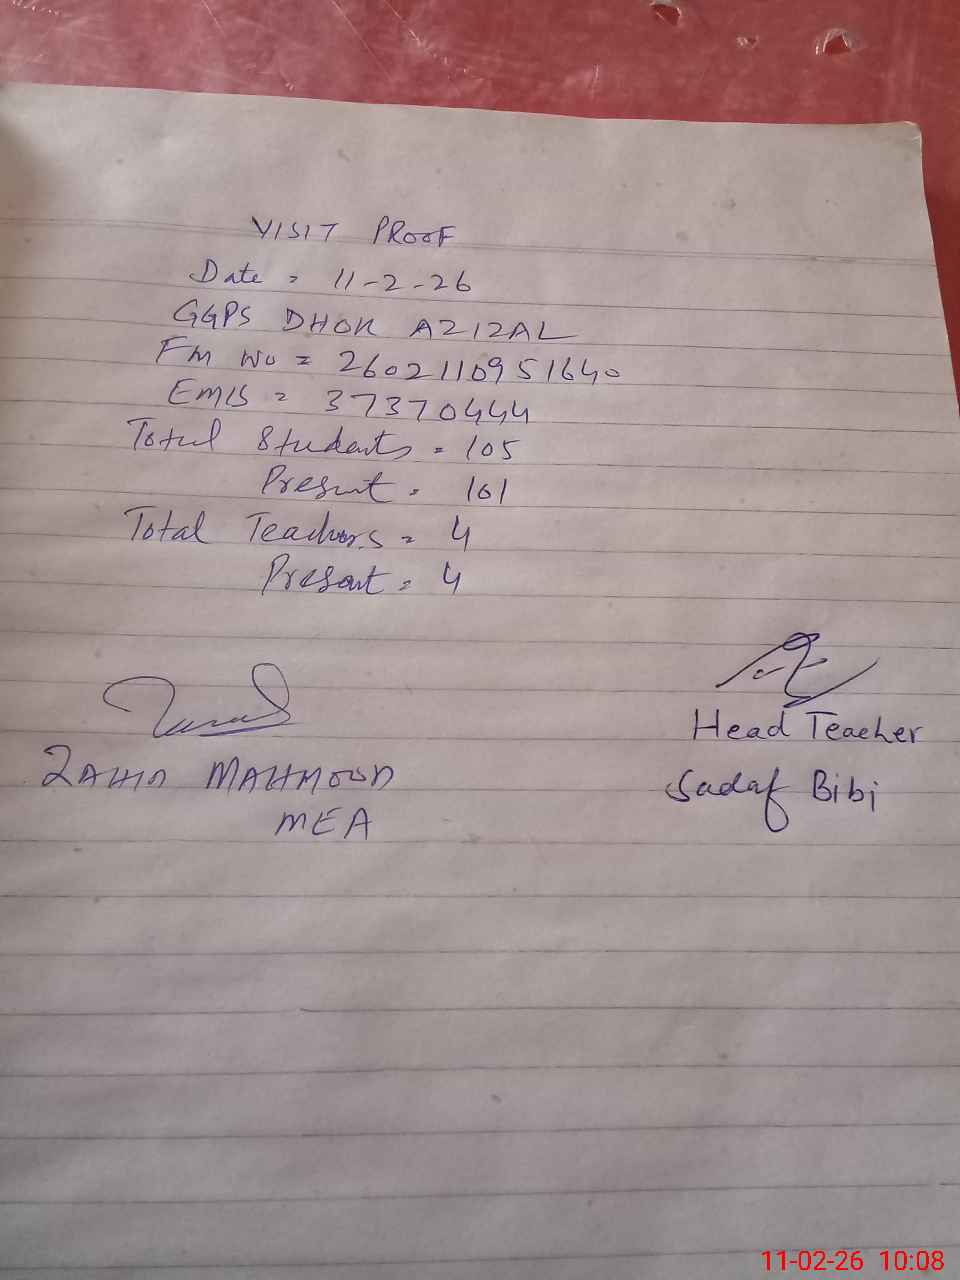 VISIT PROOF
Date = 11-2-26
GGPS DHOK AZIZAL
Fm No = 2602110951640
EMIS = 37370444
Total Students = 105
Present = 101
Total Teachers = 4
Present = 4
Head Teacher
ZAHID MAHMOOD
Sadaf Bibi
MEA
11-02-26 10:08